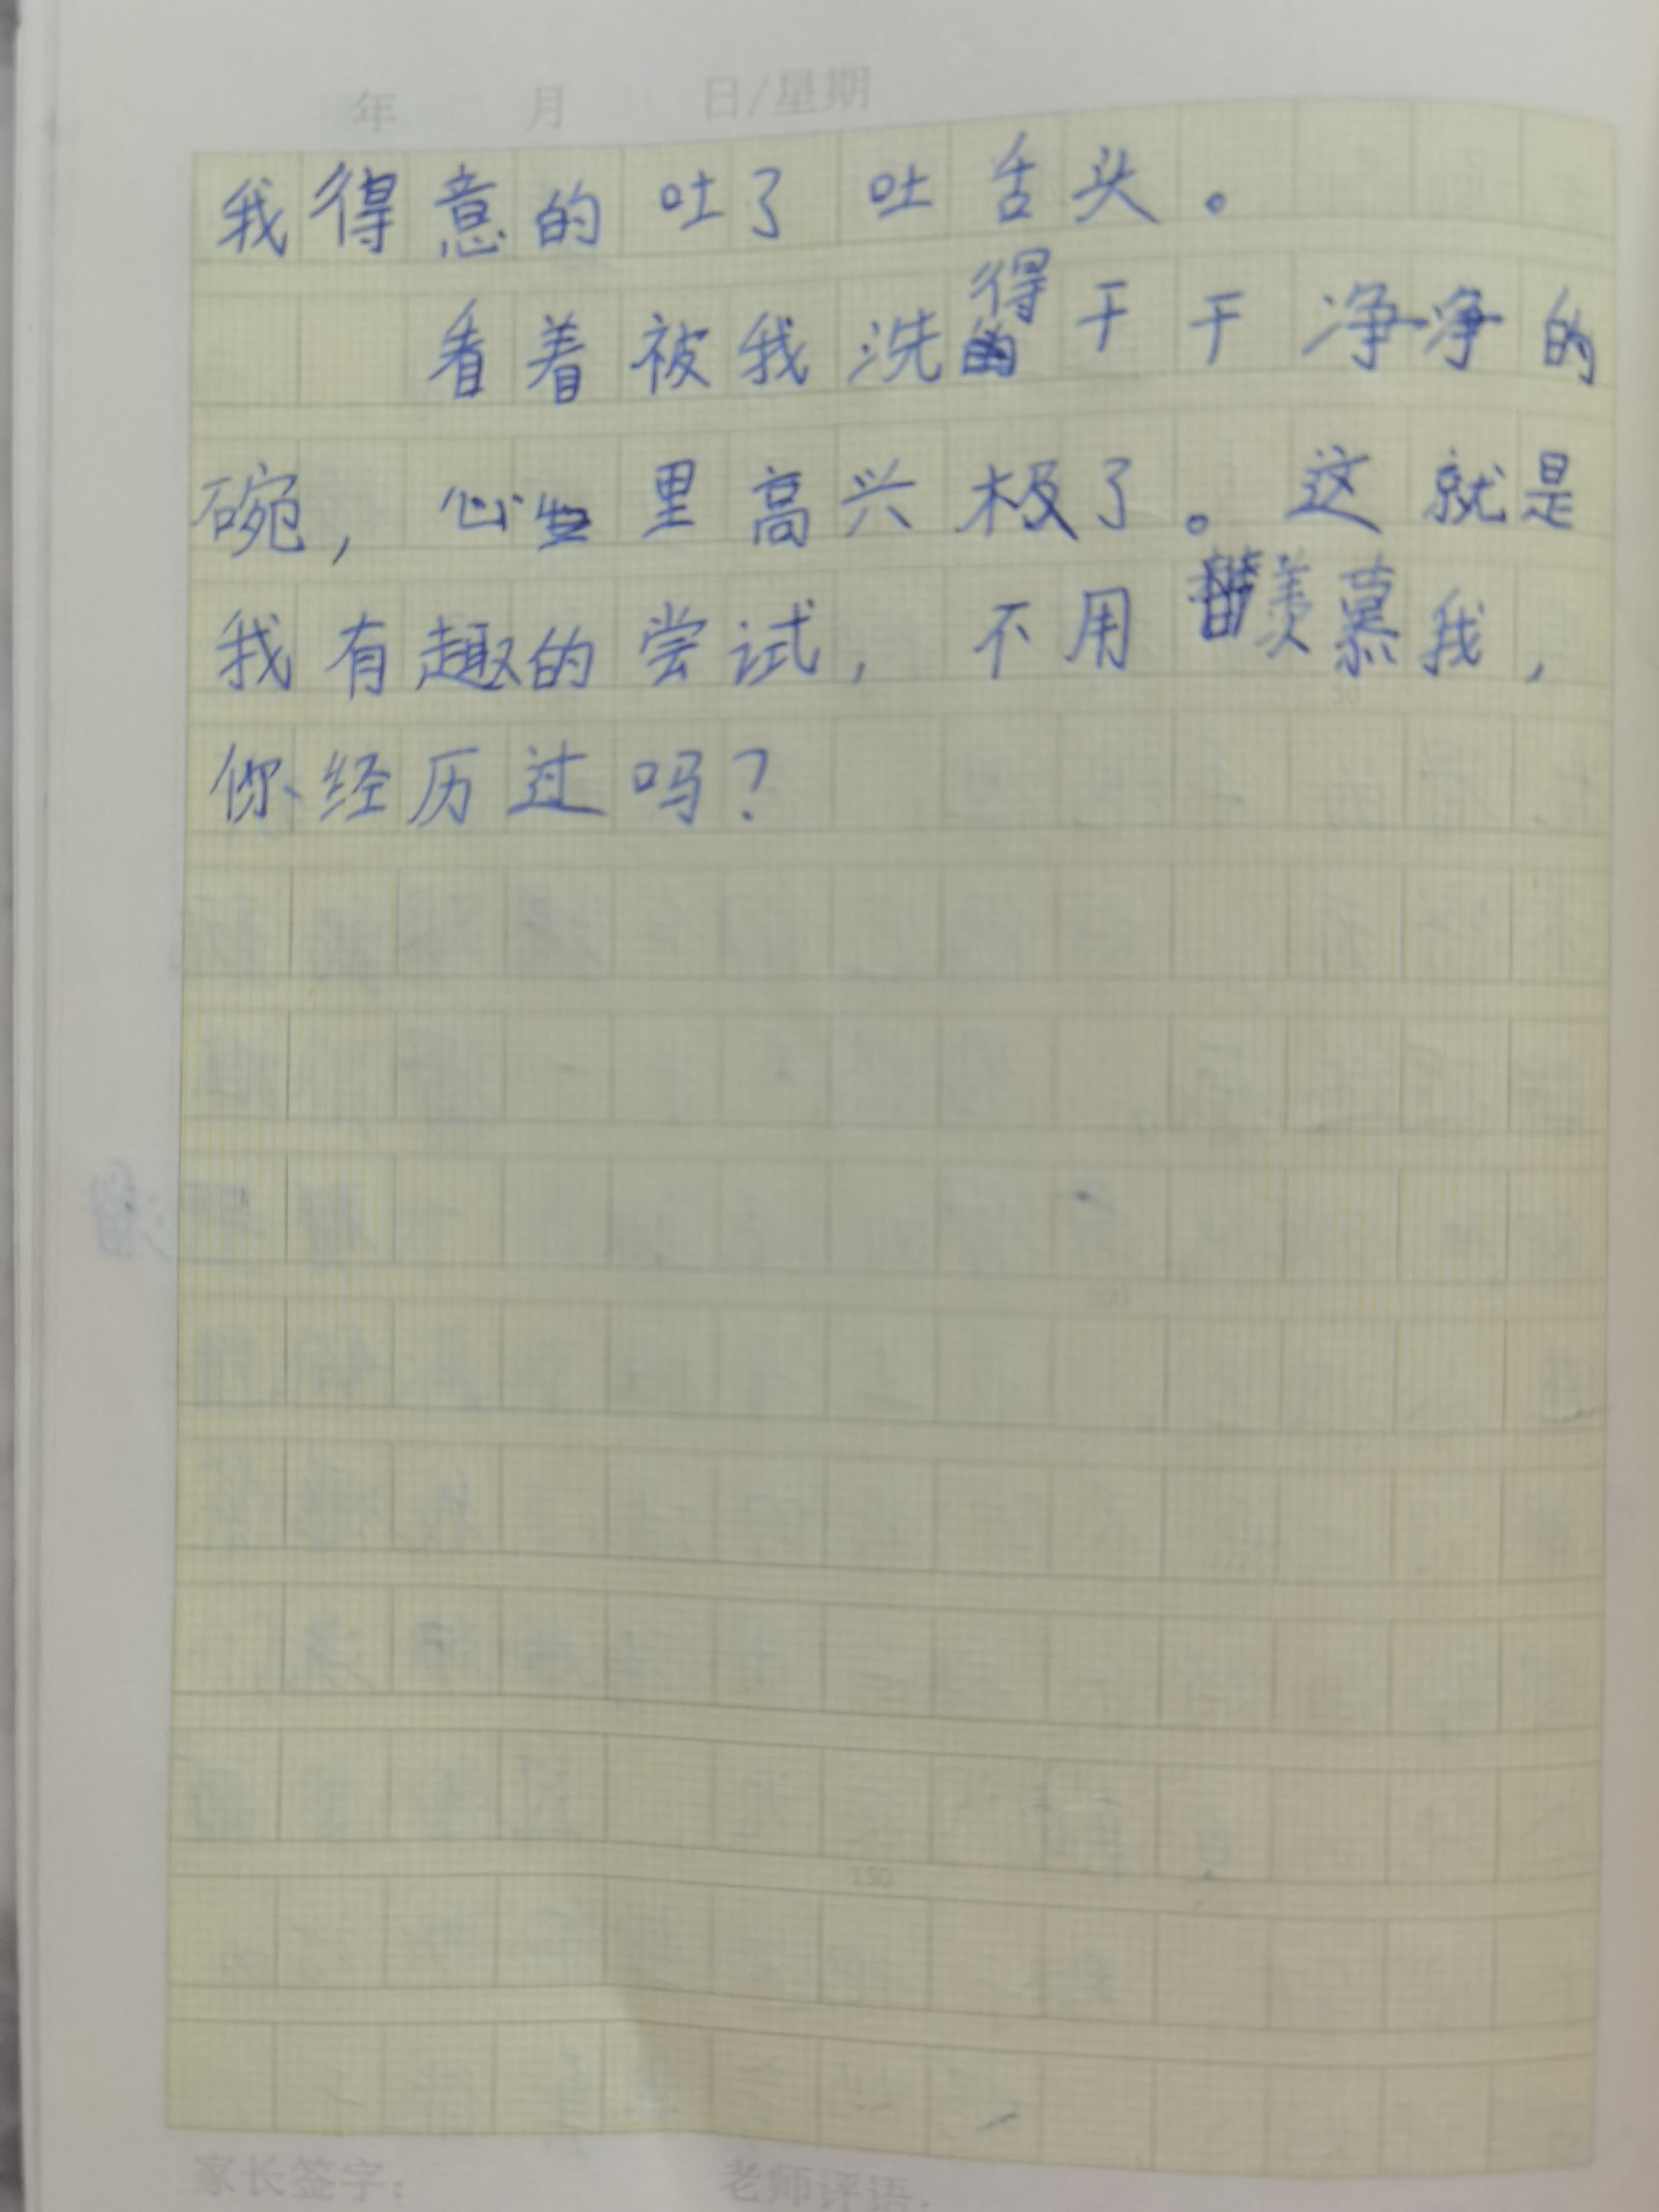 年 月 日/星期
我得意的吐了吐舌头。
看着被我洗得干干净净的
碗，心里高兴极了。这就是
我有趣的尝试，不用羡慕我，
你经历过吗？
200
150
家长签字：
老师评语：